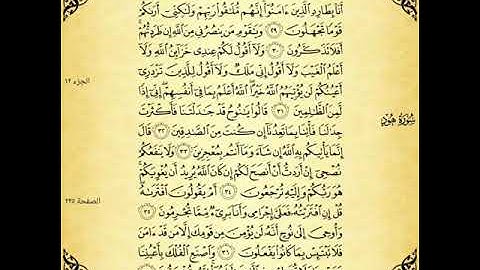 أَنَا۠ بِطَارِدِ ٱلَّذِينَ ءَامَنُوٓا۟ إِنَّهُم مُّلَٰقُوا۟ رَبِّهِمْ وَلَٰكِنِّىٓ أَرَىٰكُمْ
قَوْمًا تَجْهَلُونَ ٢٩ وَيَٰقَوْمِ مَن يَنصُرُنِى مِنَ ٱللَّهِ إِن طَرَدتُّهُمْ
أَفَلَا تَذَكَّرُونَ ٣٠ وَلَآ أَقُولُ لَكُمْ عِندِى خَزَآئِنُ ٱللَّهِ وَلَآ
أَعْلَمُ ٱلْغَيْبَ وَلَآ أَقُولُ إِنِّى مَلَكٌ وَلَآ أَقُولُ لِلَّذِينَ تَزْدَرِىٓ
أَعْيُنُكُمْ لَن يُؤْتِيَهُمُ ٱللَّهُ خَيْرًا ٱللَّهُ أَعْلَمُ بِمَا فِىٓ أَنفُسِهِمْ إِنِّىٓ إِذًا
لَّمِنَ ٱلظَّٰلِمِينَ ٣١ قَالُوا۟ يَٰنُوحُ قَدْ جَٰدَلْتَنَا فَأَكْثَرْتَ
جِدَٰلَنَا فَأْتِنَا بِمَا تَعِدُنَآ إِن كُنتَ مِنَ ٱلصَّٰدِقِينَ ٣٢ قَالَ
إِنَّمَا يَأْتِيكُم بِهِ ٱللَّهُ إِن شَآءَ وَمَآ أَنتُم بِمُعْجِزِينَ ٣٣ وَلَا يَنفَعُكُمْ
نُصْحِىٓ إِنْ أَرَدتُّ أَنْ أَنصَحَ لَكُمْ إِن كَانَ ٱللَّهُ يُرِيدُ أَن يُغْوِيَكُمْ
هُوَ رَبُّكُمْ وَإِلَيْهِ تُرْجَعُونَ ٣٤ أَمْ يَقُولُونَ ٱفْتَرَىٰهُ
قُلْ إِنِ ٱفْتَرَيْتُهُۥ فَعَلَىَّ إِجْرَامِى وَأَنَا۠ بَرِىٓءٌ مِّمَّا تُجْرِمُونَ ٣٥
وَأُوحِىَ إِلَىٰ نُوحٍ أَنَّهُۥ لَن يُؤْمِنَ مِن قَوْمِكَ إِلَّا مَن قَدْ ءَامَنَ
فَلَا تَبْتَئِسْ بِمَا كَانُوا۟ يَفْعَلُونَ ٣٦ وَٱصْنَعِ ٱلْفُلْكَ بِأَعْيُنِنَا
سُورَةُ هُودٍ
الجزء ١٢
الصفحة ٢٢٥